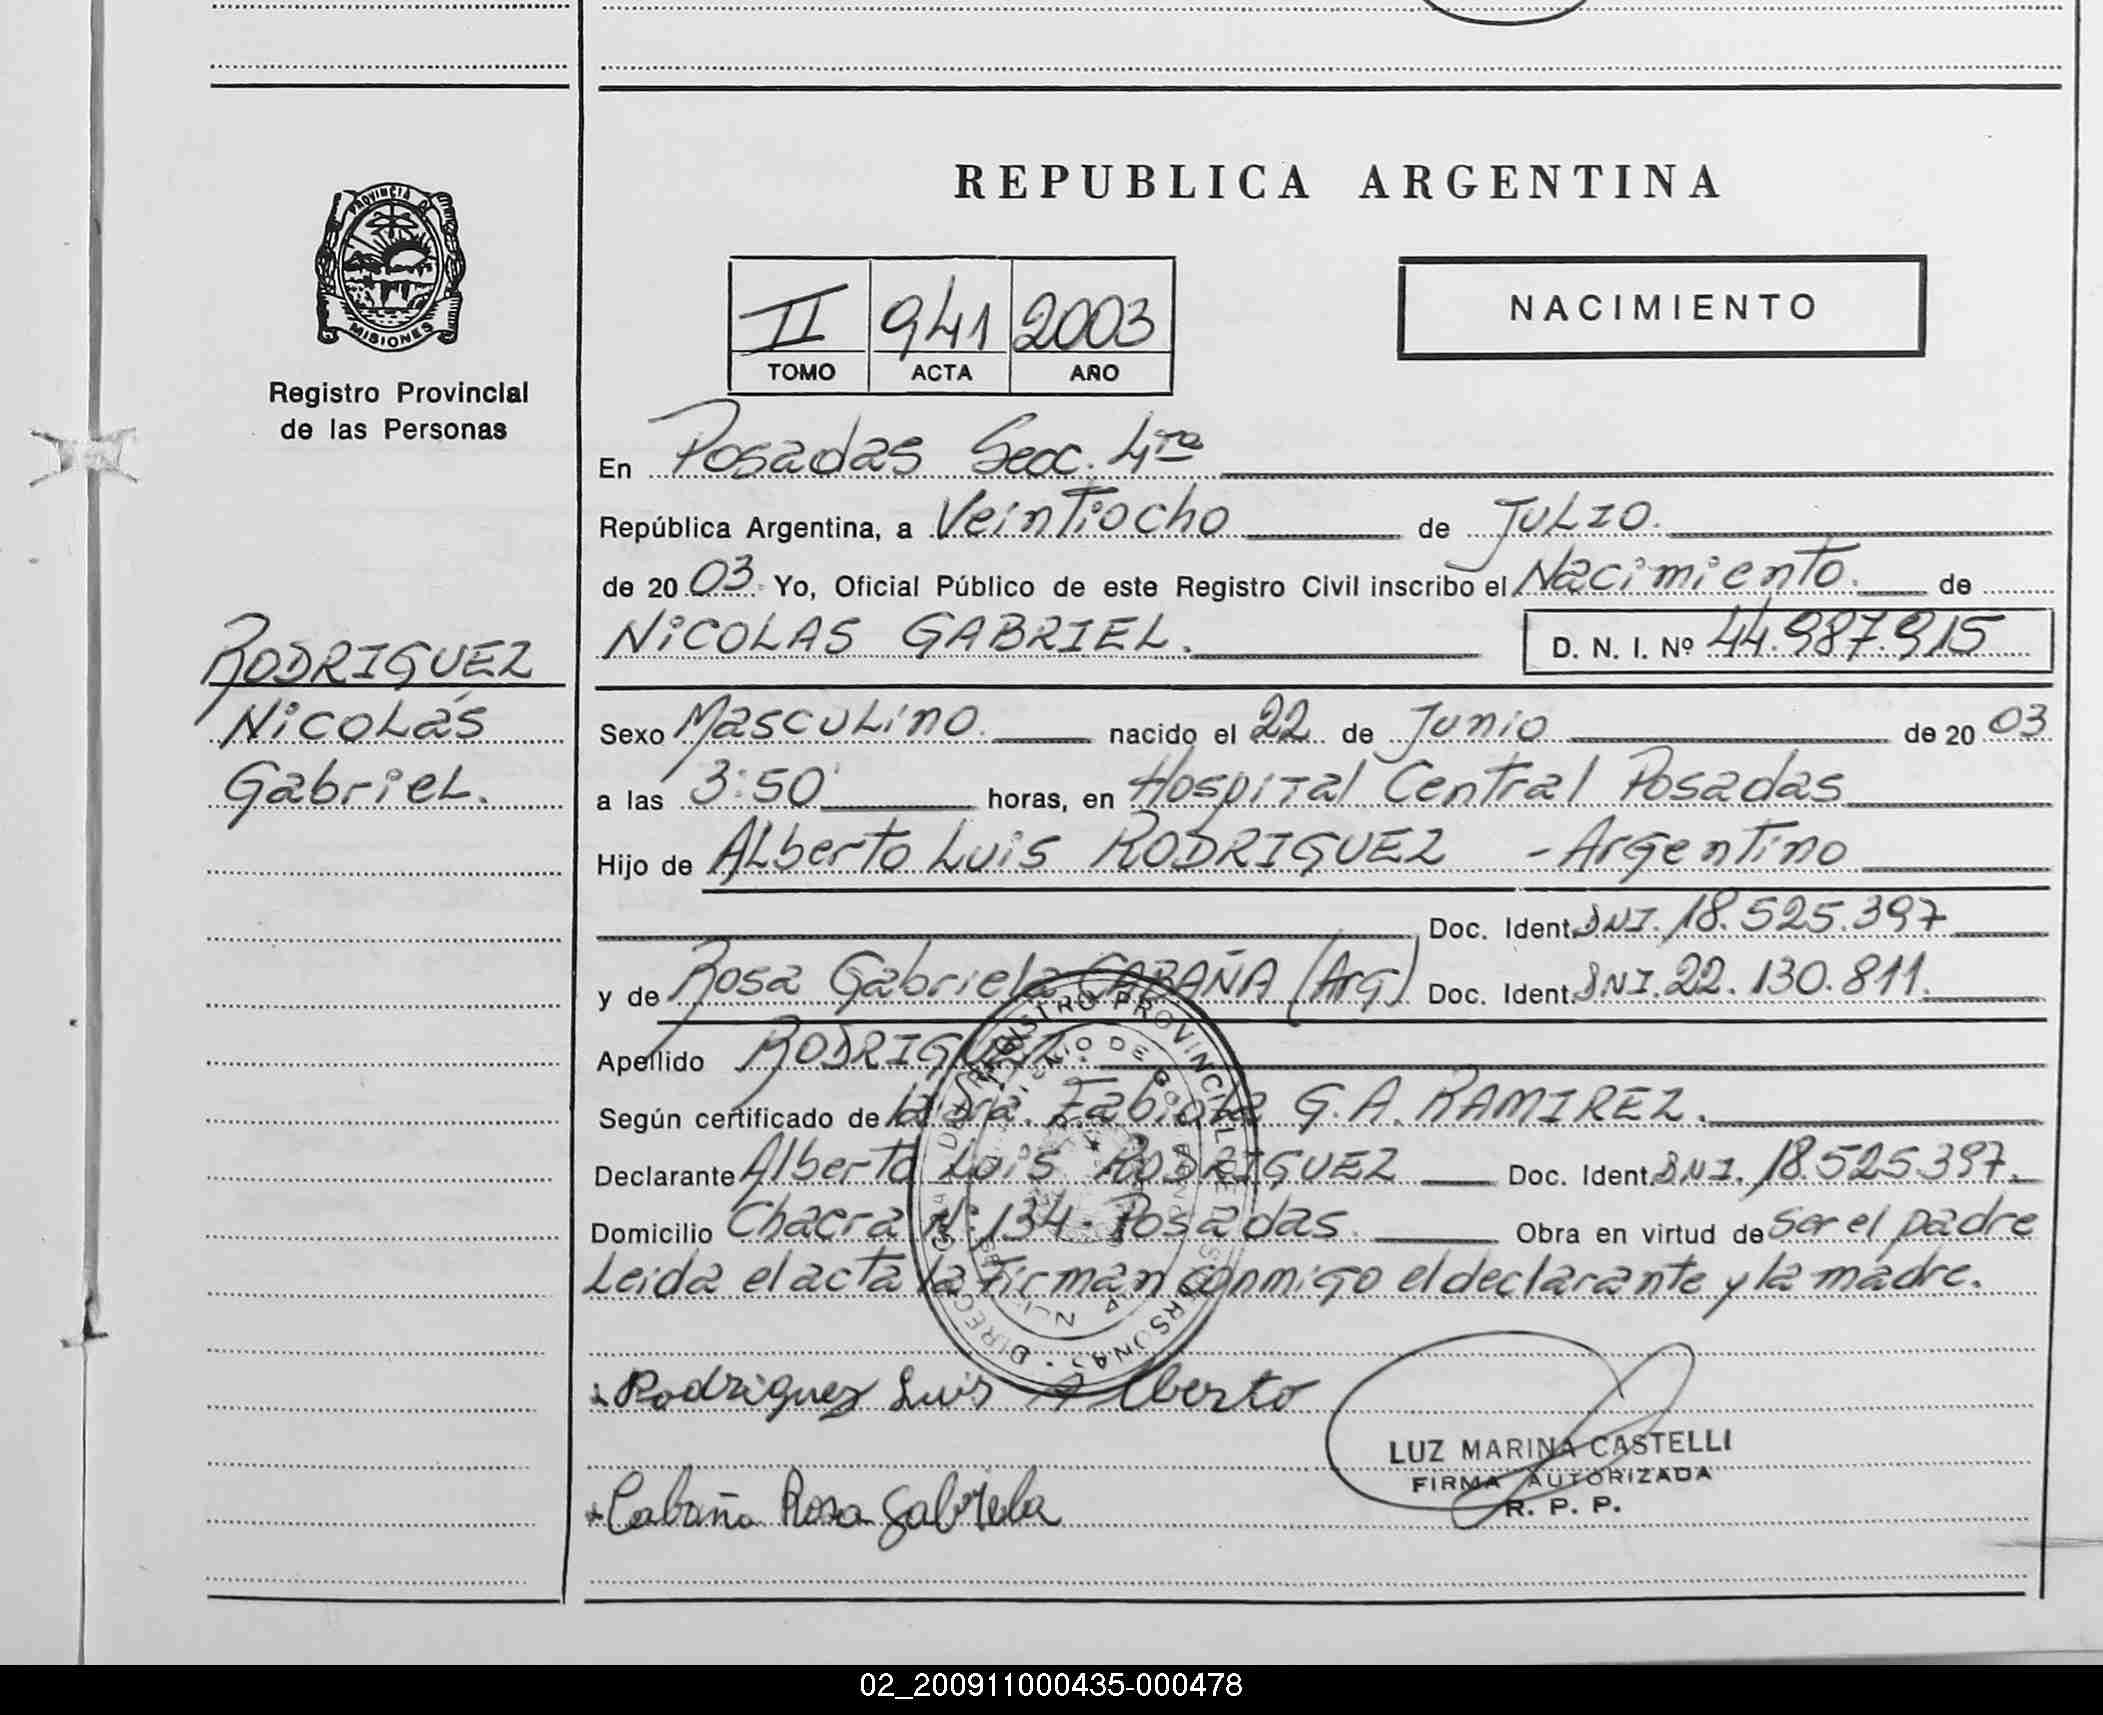 REPUBLICA ARGENTINA
PROVINCIA DE
MISIONES
Registro Provincial
de las Personas
II 941 2003
TOMO ACTA AÑO
NACIMIENTO
En Posadas Secc. 4ta
República Argentina, a Veintiocho de JULIO.
de 20 03. Yo, Oficial Público de este Registro Civil inscribo el Nacimiento. de
NICOLAS GABRIEL. D. N. I. Nº 44.987.915
RODRIGUEZ
Nicolás
Gabriel.
Sexo Masculino. nacido el 22 de Junio de 20 03
a las 3:50 horas, en Hospital Central Posadas
Hijo de Alberto Luis RODRIGUEZ - Argentino
Doc. Ident. DNI. 18.525.397
y de Rosa Gabriela CABAÑA (Arg) Doc. Ident. DNI. 22.130.811.
Apellido RODRIGUEZ.
Según certificado de la Dra. Fabiola G. A. RAMIREZ.
Declarante Alberto Luis RODRIGUEZ Doc. Ident. DNI. 18.525.397.
Domicilio Chacra Nº 134 - Posadas. Obra en virtud de ser el padre
Leida el acta la firman conmigo el declarante y la madre.
REGISTRO PROVINCIAL DE LAS PERSONAS · DIRECCION
Rodriguez Luis Alberto
LUZ MARINA CASTELLI
FIRMA AUTORIZADA
R. P. P.
Cabaña Rosa Gabriela
02_200911000435-000478